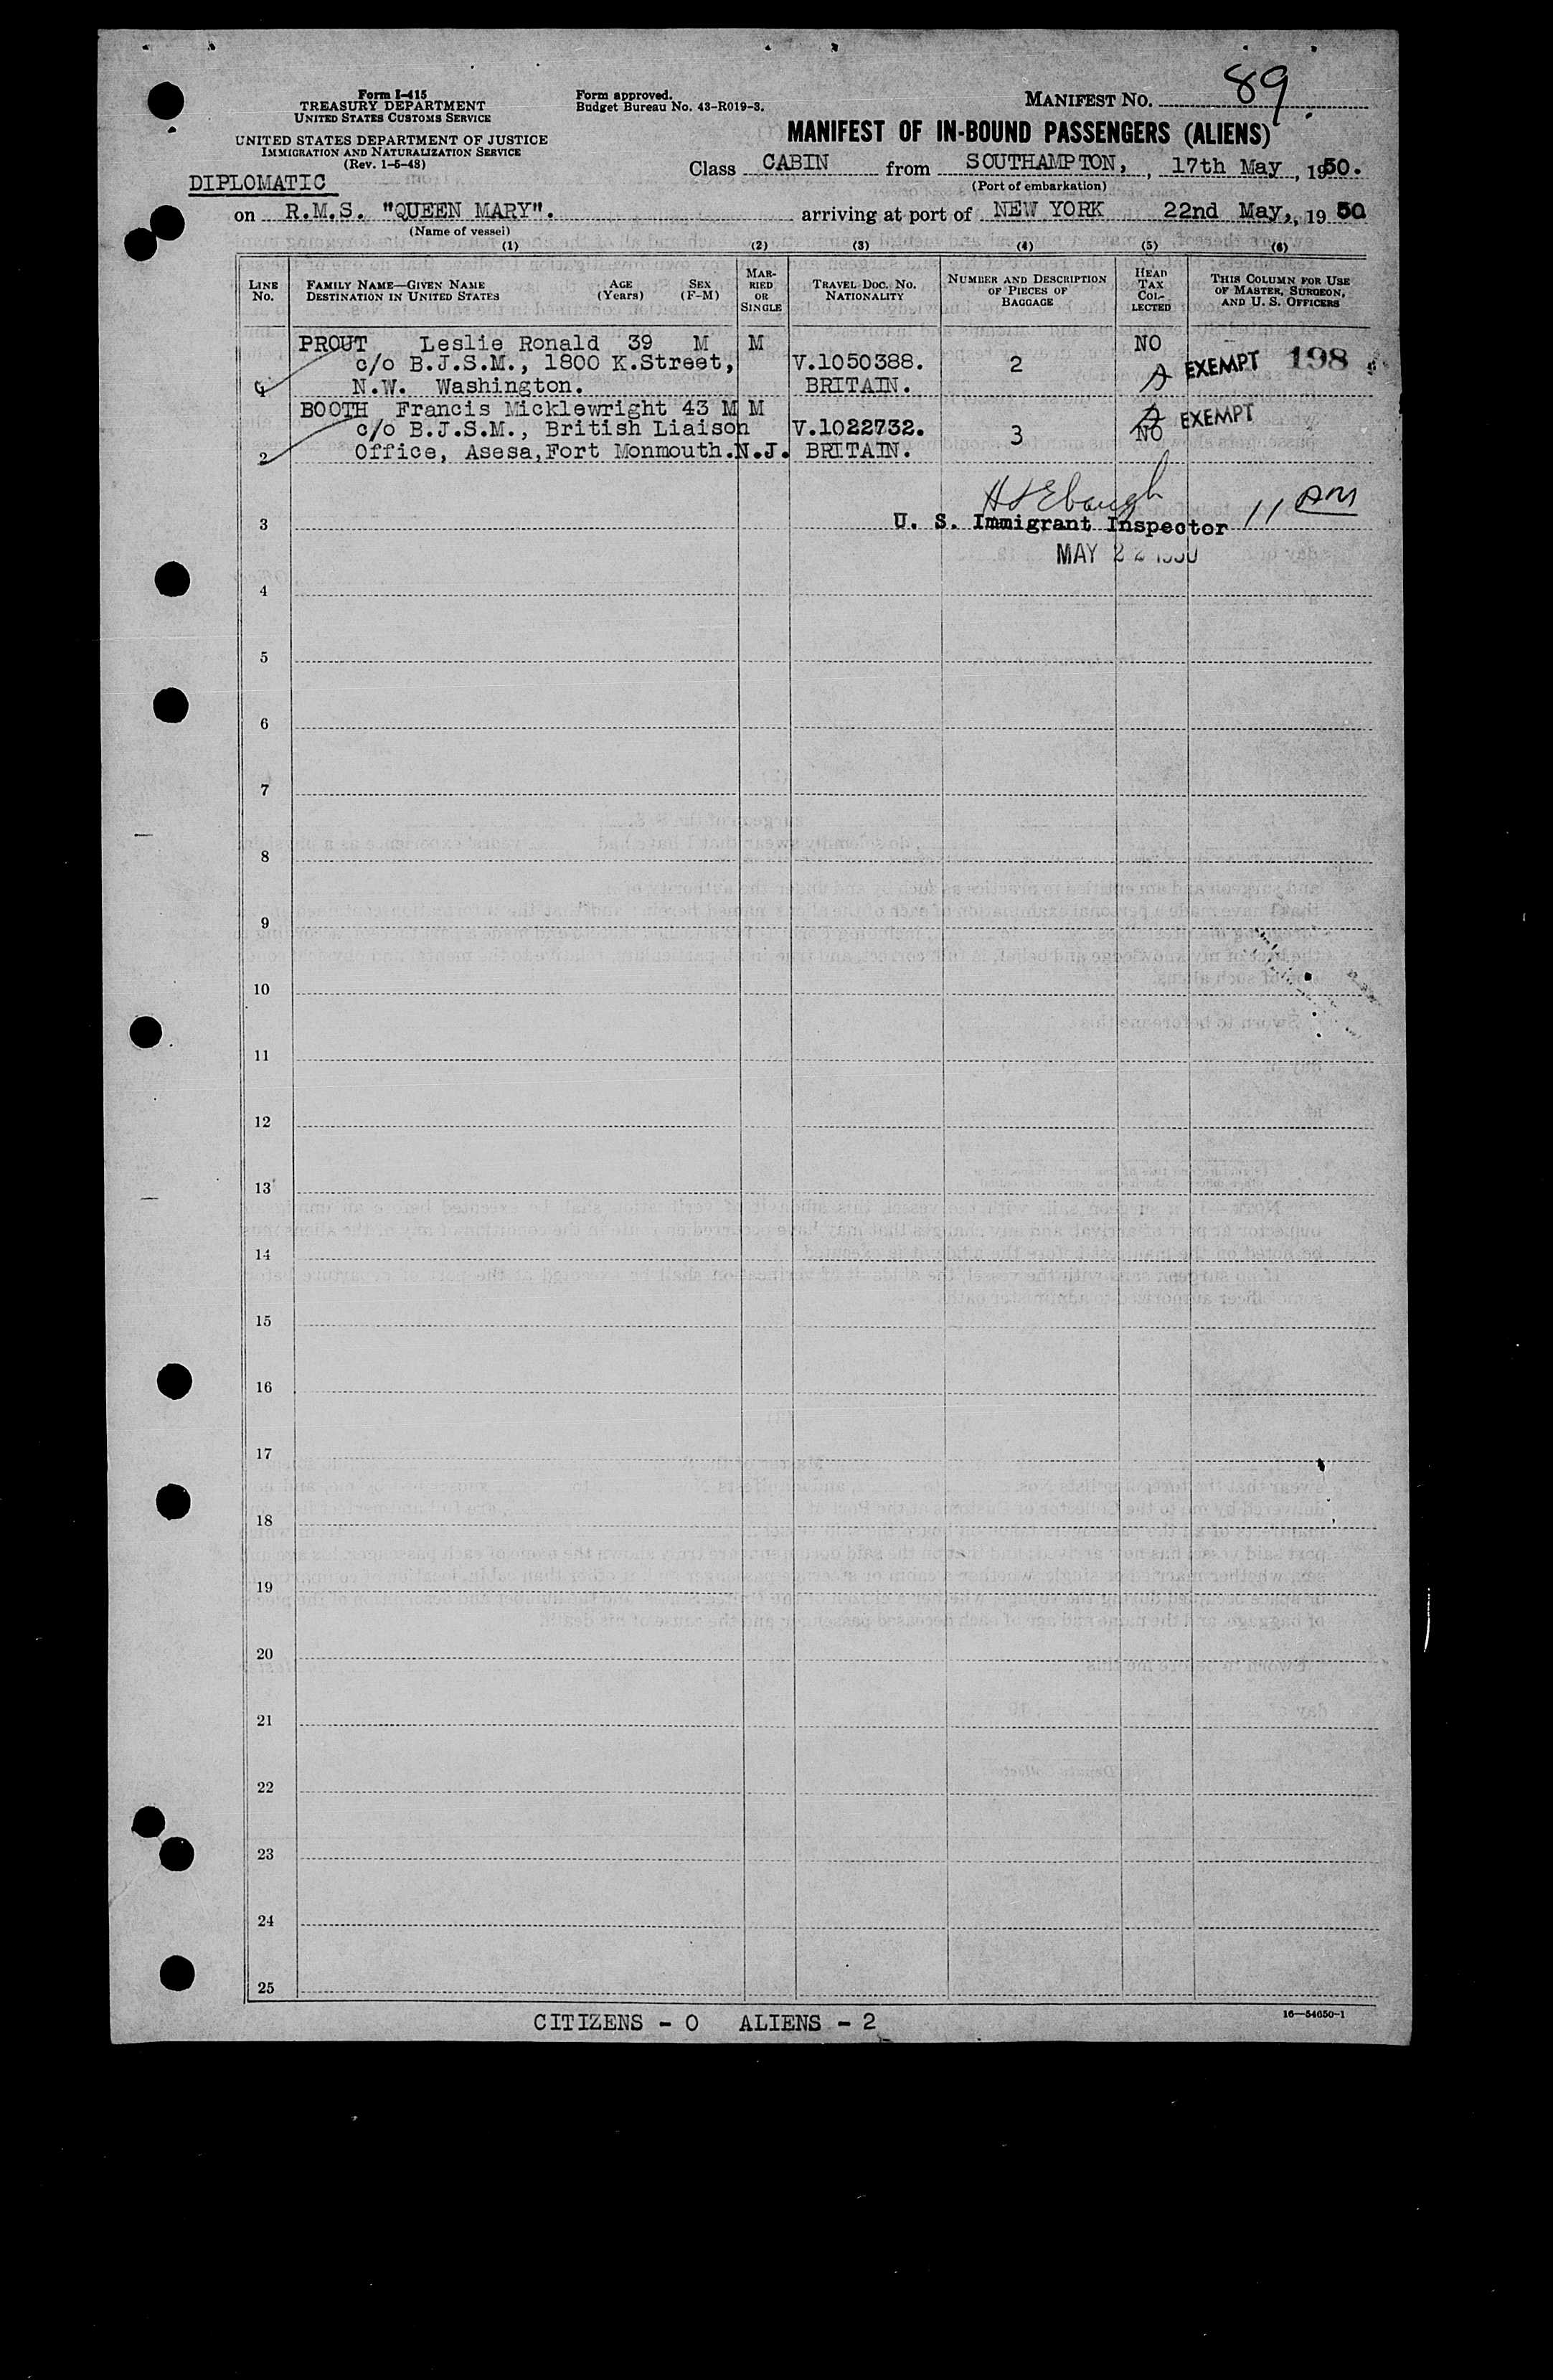 Form I-415
TREASURY DEPARTMENT
UNITED STATES CUSTOMS SERVICE
UNITED STATES DEPARTMENT OF JUSTICE
IMMIGRATION AND NATURALIZATION SERVICE
(Rev. 1-5-48)
Form approved.
Budget Bureau No. 43-R019-3.
MANIFEST NO. 89
MANIFEST OF IN-BOUND PASSENGERS (ALIENS)
DIPLOMATIC
Class CABIN from SOUTHAMPTON, , 17th May , 1950.
(Port of embarkation)
on R.M.S. "QUEEN MARY". arriving at port of NEW YORK 22nd May,, 19 50
(Name of vessel)
(1) (2) (3) (4) (5) (6)
LINE No. FAMILY NAME—GIVEN NAME DESTINATION IN UNITED STATES AGE (Years) SEX (F-M) MARRIED OR SINGLE TRAVEL DOC. NO. NATIONALITY NUMBER AND DESCRIPTION OF PIECES OF BAGGAGE HEAD TAX COLLECTED THIS COLUMN FOR USE OF MASTER, SURGEON, AND U. S. OFFICERS
PROUT Leslie Ronald 39 M M NO
c/o B.J.S.M., 1800 K.Street, V.1050388. 2 EXEMPT 198
N.W. Washington. BRITAIN.
BOOTH Francis Micklewright 43 M M EXEMPT
c/o B.J.S.M., British Liaison V.1022732. 3 NO
2 Office, Asesa,Fort Monmouth.N.J. BRITAIN.
3 U. S. Immigrant Inspector 11 AM
MAY 22 1950
4
5
6
7
8
9
10
11
12
13
14
15
16
17
18
19
20
21
22
23
24
25
CITIZENS - 0 ALIENS - 2
16—54650-1